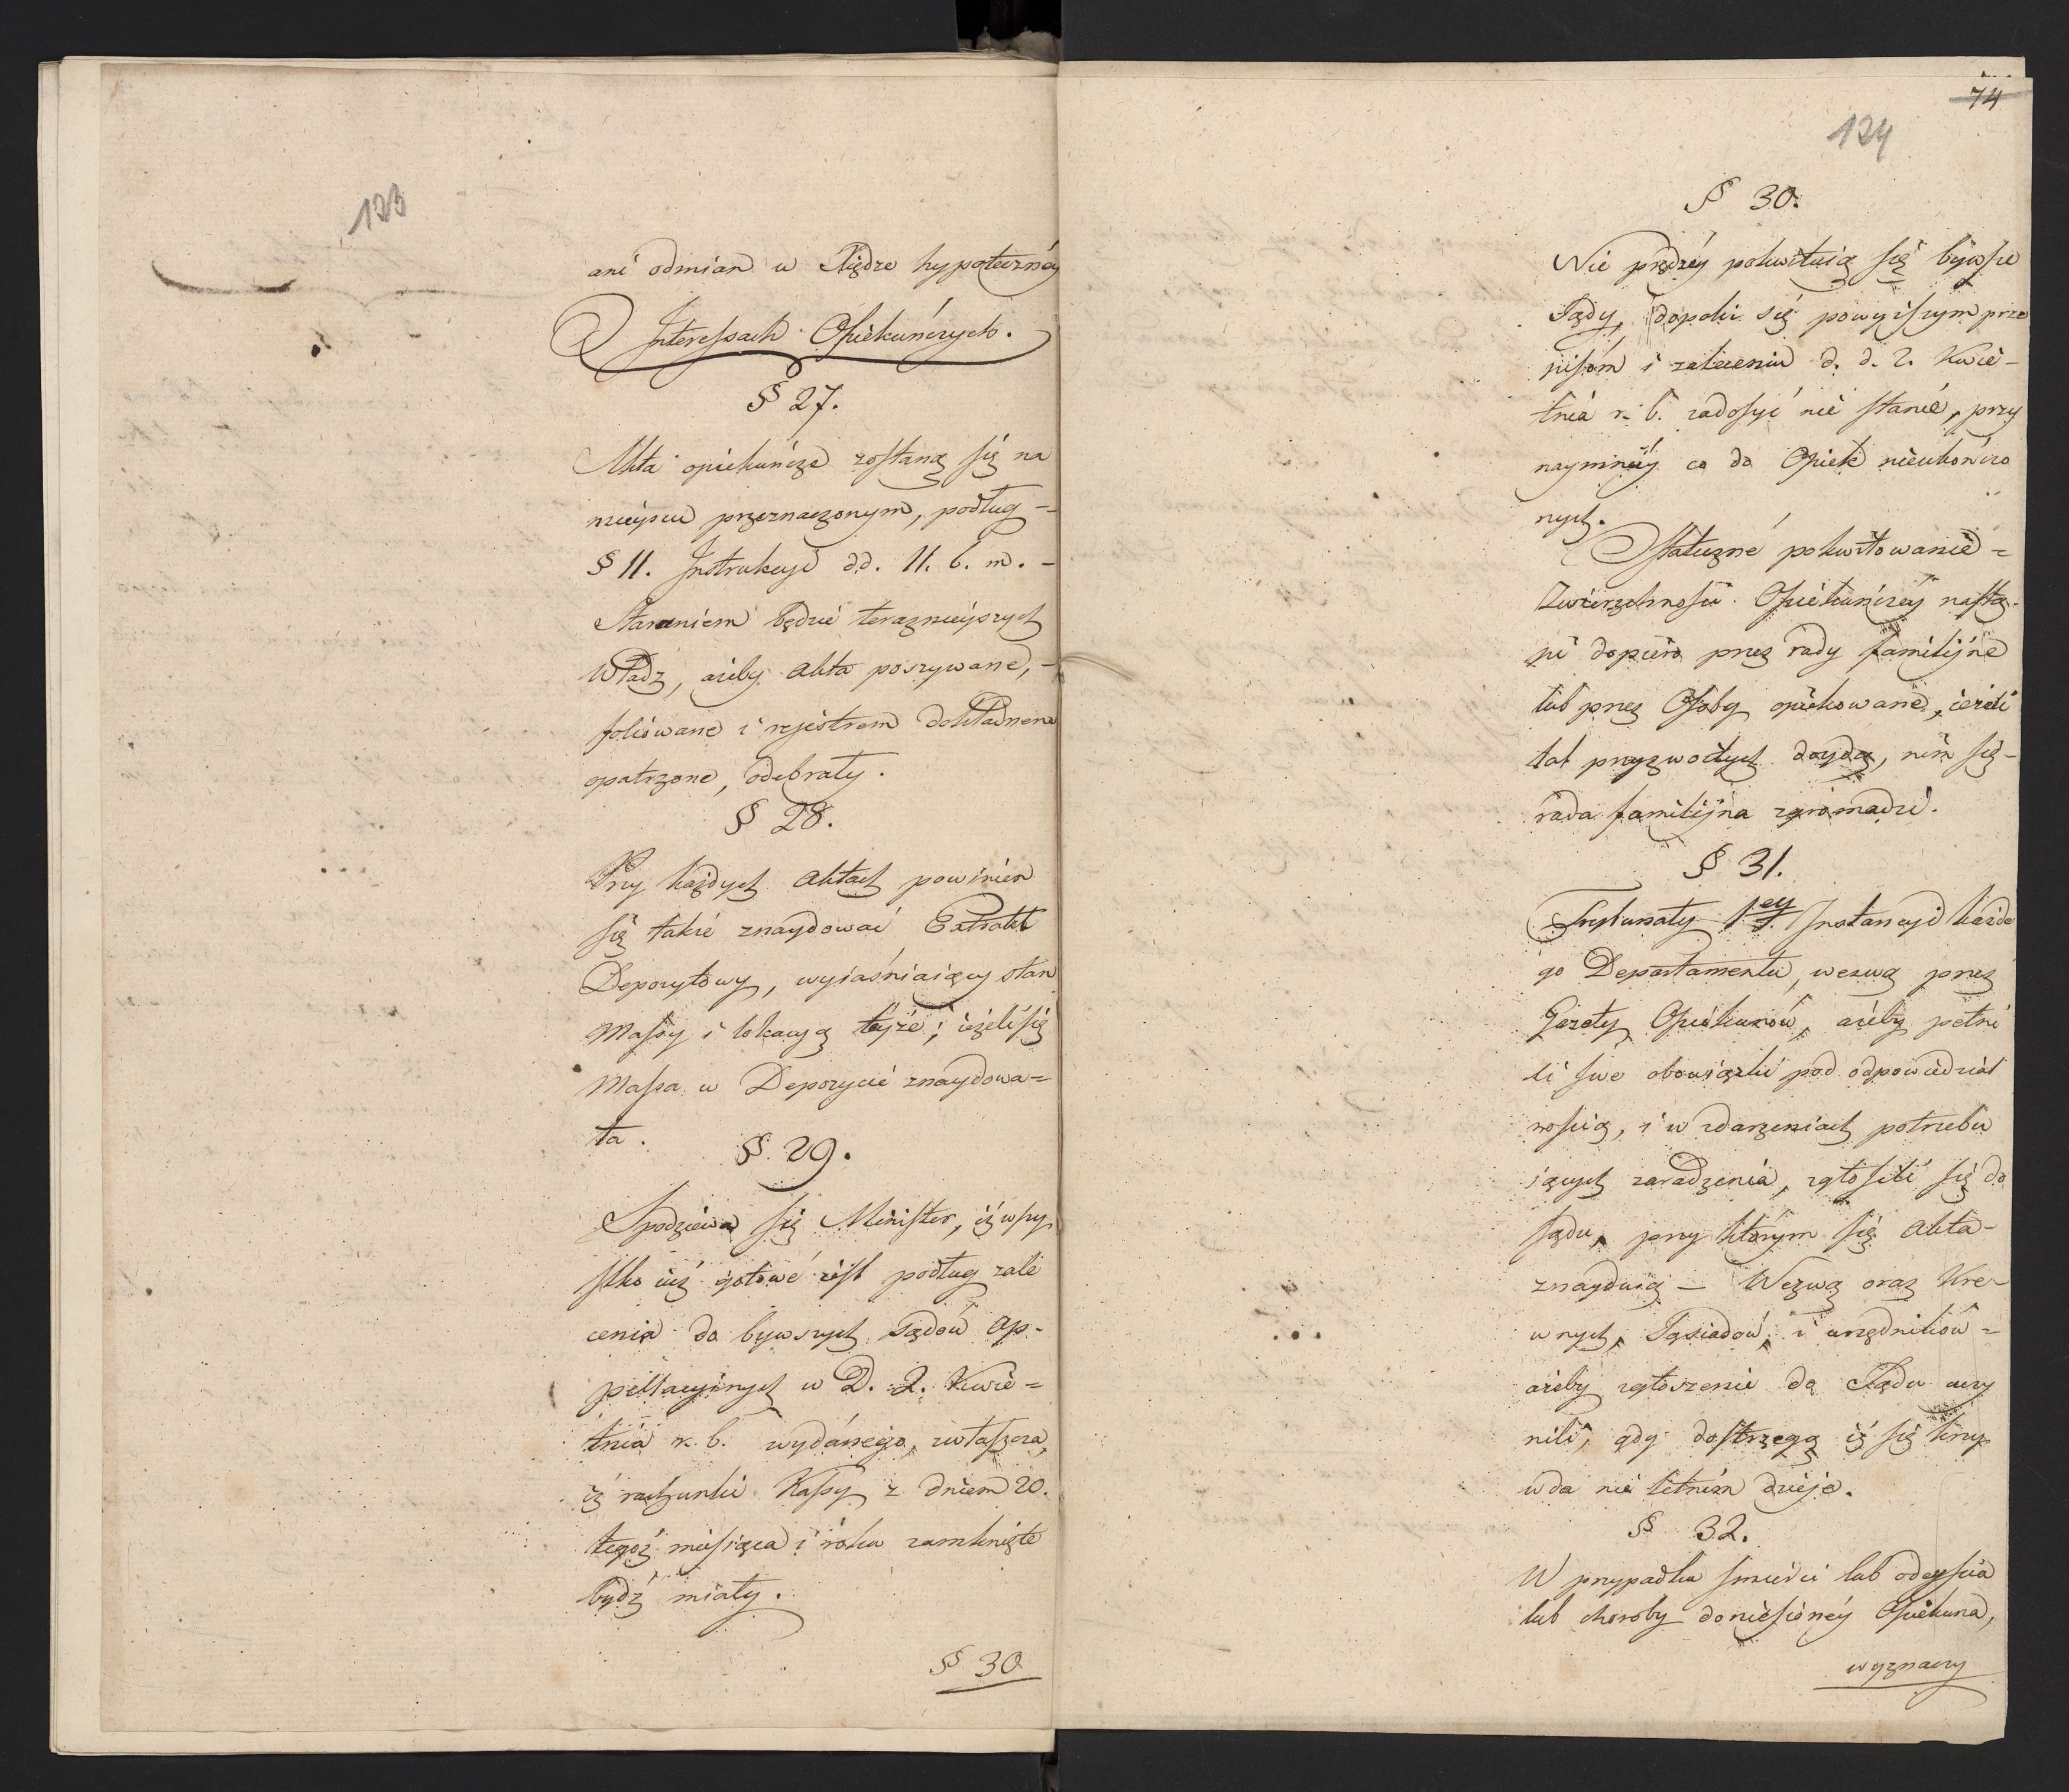 123
ani odmian w Xiędze hypotecznéy
O Interessach Opiekuńczych.
§ 27.
Akta opiekuńcze zostaną się na
mieyscu przeznaczonym, podług =
§ 11. Instrukcyi d.d. 11. b. m. -
Staraniem będzie teraznieyszych
Władz, ażeby akta poszywane, -
foliowane i rejestrem dokładnem
opatrzone, odebrały.
§ 28.
Przy każdych aktach powinien
się także znaydować Extrakt
Depozytowy, wyiaśniaiący stan
Massy i lokacyą teyże; ieżeli się
Massa w Depozycie znaydowa=
ła.
§ 29.
Spodziewa się Minister, iż wszy
stko iuż gotowe iest podług zale
cenia do bywszych Sądów Ap-
pellacyinych w D. 2. Kwie=
tnia r. b. wydanego, zwłaszcza,
iż rachunki Kassy z dniem 20.
tegoż miesiąca i roku zamknięte
bydź miały.
§ 30
74
124
§ 30.
Nie prędzéy pokwituią się bywsze
Sądy, dopoki się powyższym prze
pisóm i zaleceniu d. d. 2. Kwie-
tnia r. b. zadosyć nie stanie, przy
naymniéy co do Opiek nieukończo
nych.
Stateczne pokwitowanie =
Zwierzchności Opiekuńczéy nastą-
pi dopiero przez rady familijne
lub przez Osoby opiekowane, ieżeli
lat przyzwoitych doydą, nim się -
rada familijna zgromadzi.
§ 31.
Trybunały 1ey Instancyi każde
go Departamentu, wezwą przez
Gazety Opiekunów, ażeby pełni
li swe obowiązki pod odpowiedzial
nością, i w zdarzeniach potrzebu
iących zaradzenia, zgłosili się do
sądu, przy którym się Akta -
znayduią — Wezwą oraz Kre-
wnych, Sąsiadów, i urzędników =
ażeby zgłoszenie do Sądu uczy
nili, gdy dostrzegą iż się krzy
wda nieletnim dzieje.
§ 32.
W przypadku śmierci lub odeyścia
lub choroby doniesionéy Opiekuna,
wyznaczy